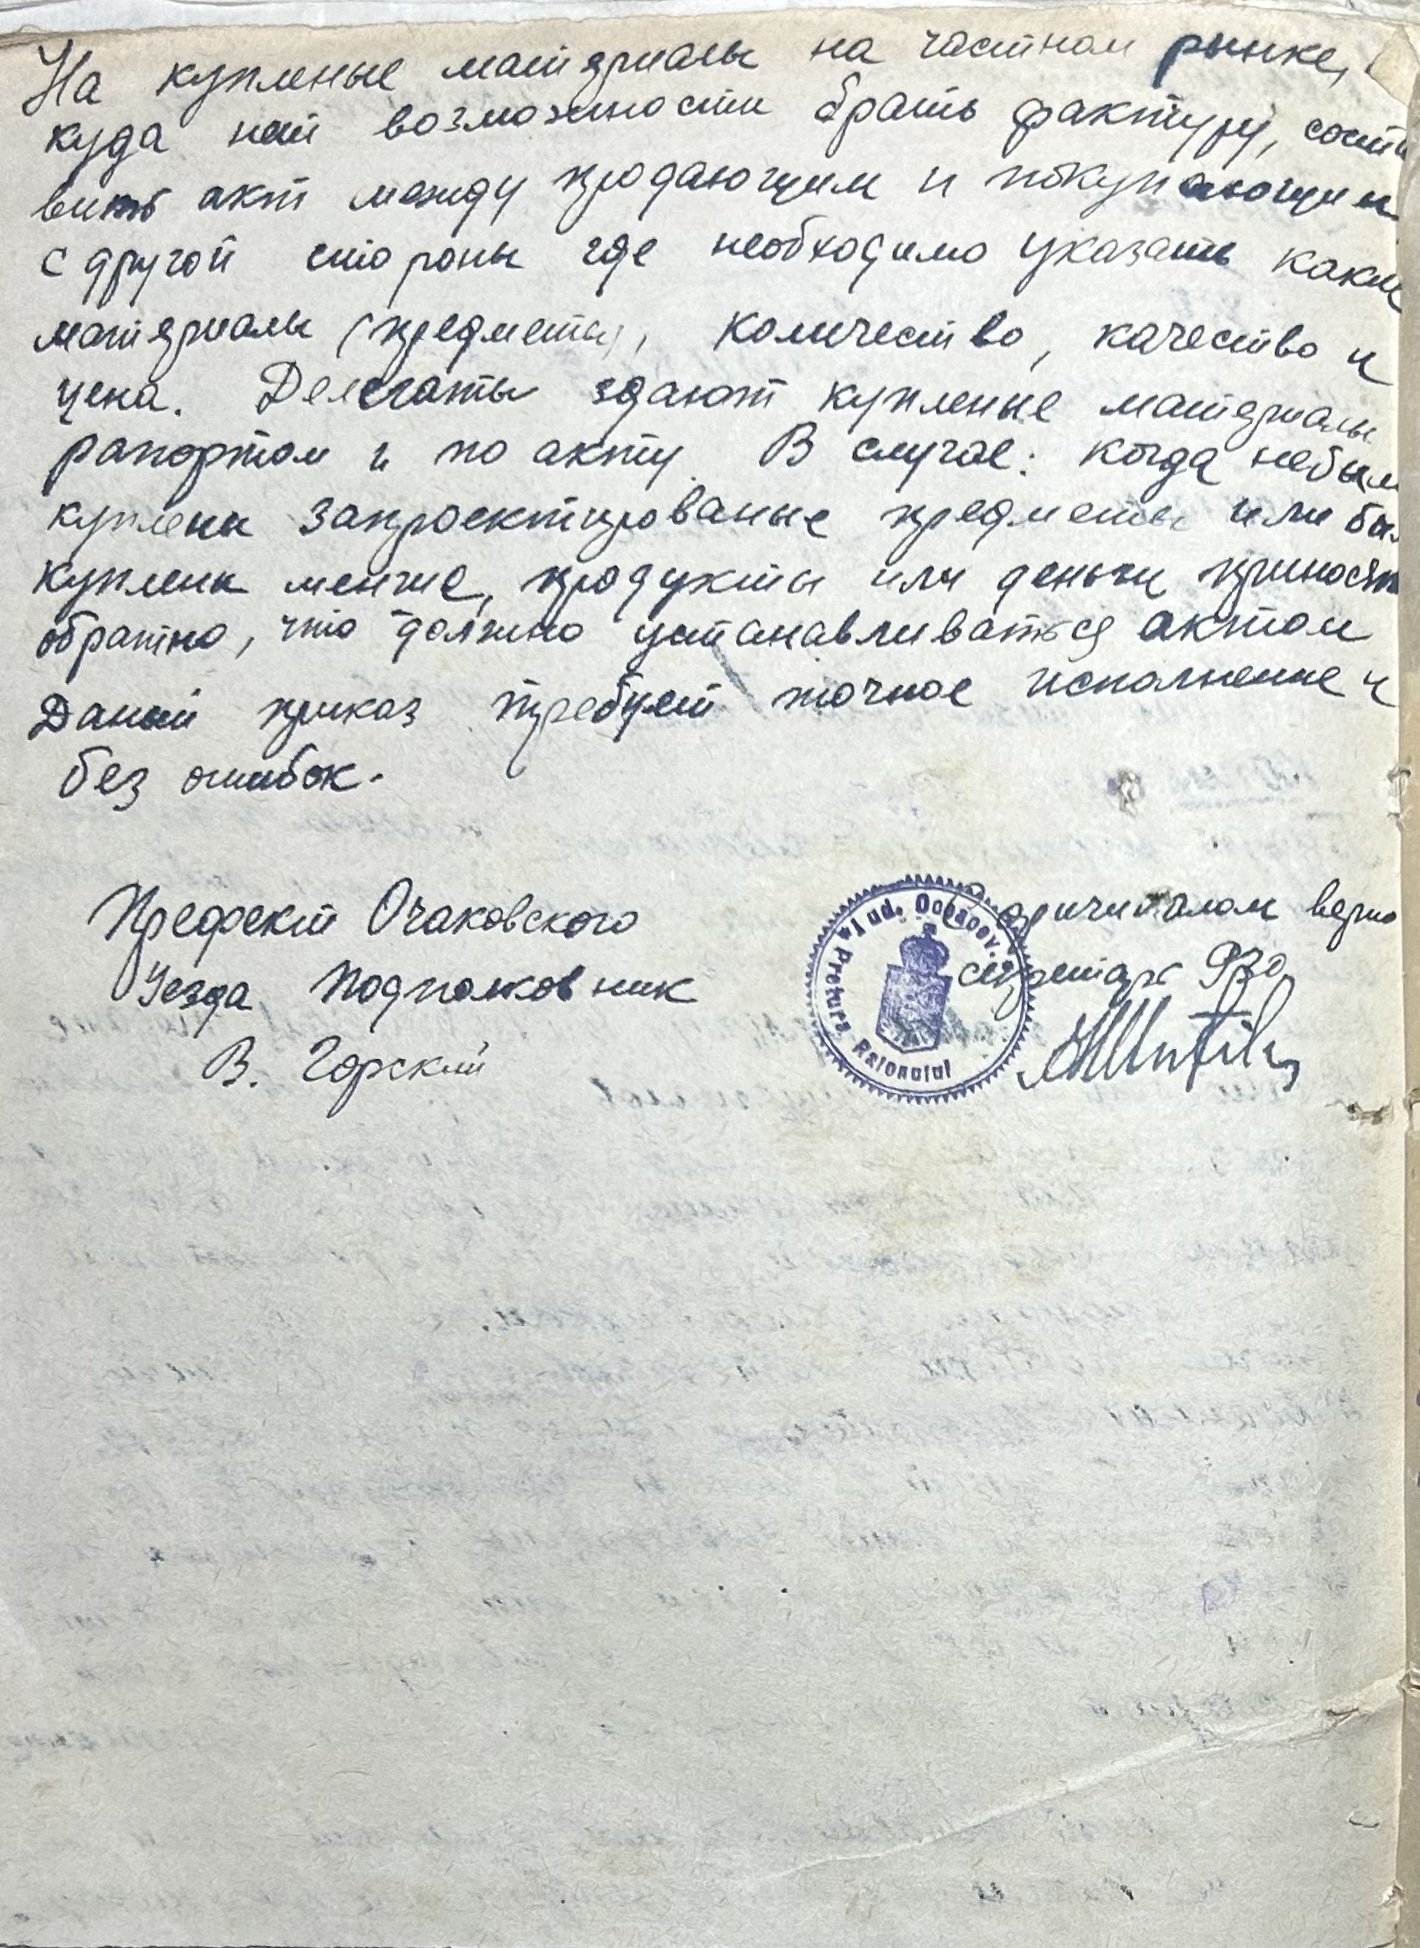 На купленые материалы на частном рынке,
куда нет возможности брать фактуру, соста
вить акт между продающим и покупающим
с другой стороны где необходимо указать какие
материалы (предметы), количество, качество и
цена. Делегаты здают купленые материалы
рапортом и по акту. В случае: когда небыли
куплены запроектированые предметы или был
куплены менше, продукты или деньги приносят
обратно, что должно устанавливаться актом
Даный приказ требует точное исполнение и
без ошибок.
Префект Очаковского
Уезда Подполковник
В. Горский
С оригиналом верно
секретарь
* Jud. Oceacov. * Pretura Raionului